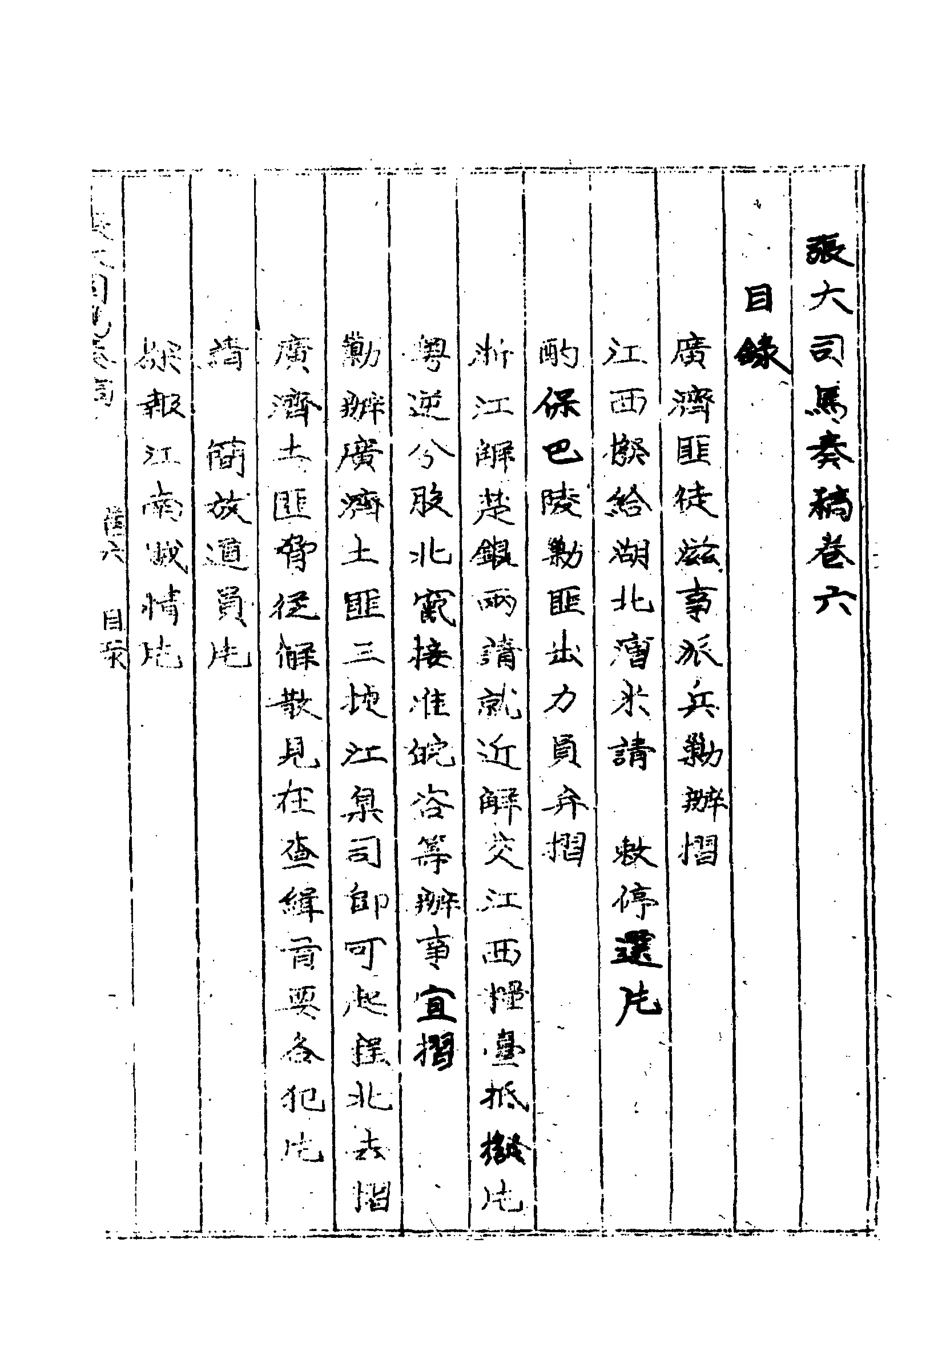 張大司馬奏稿卷六
目錄
廣濟匪徒滋事派兵勦辦摺
江西撥給湖北漕米請 敕停運片
酌保巴陵勦匪出力員弁摺
浙江解楚銀兩請就近解交江西糧臺抵撥片
粵逆分股北竄接准皖咨籌辦事宜摺
勦辦廣濟土匪三堍江臬司即可起程北去摺
廣濟土匪脅從解散見在查緝首要各犯片
請 簡放道員片
探報江南賊情片
張大司馬奏稿 卷六 目錄